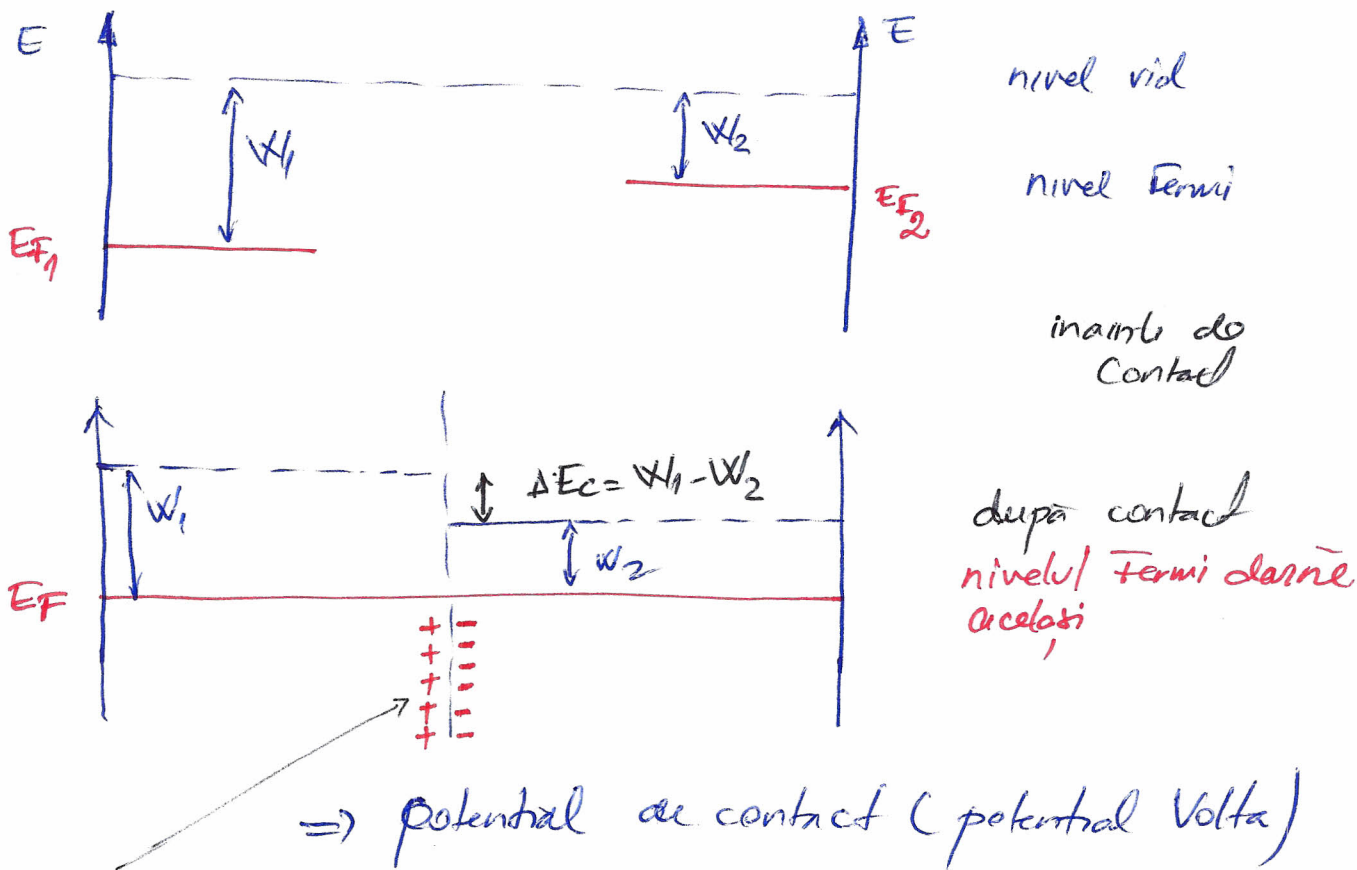 E
E
nivel vid
W1
W2
nivel Fermi
EF2
EF1
inainte de
Contact
ΔEc = W1 - W2
W1
după contact
W2
nivelul Fermi devine
EF
același
+ -
+ -
+ -
+ -
+ -
+ -
=> potential de contact (potential Volta)